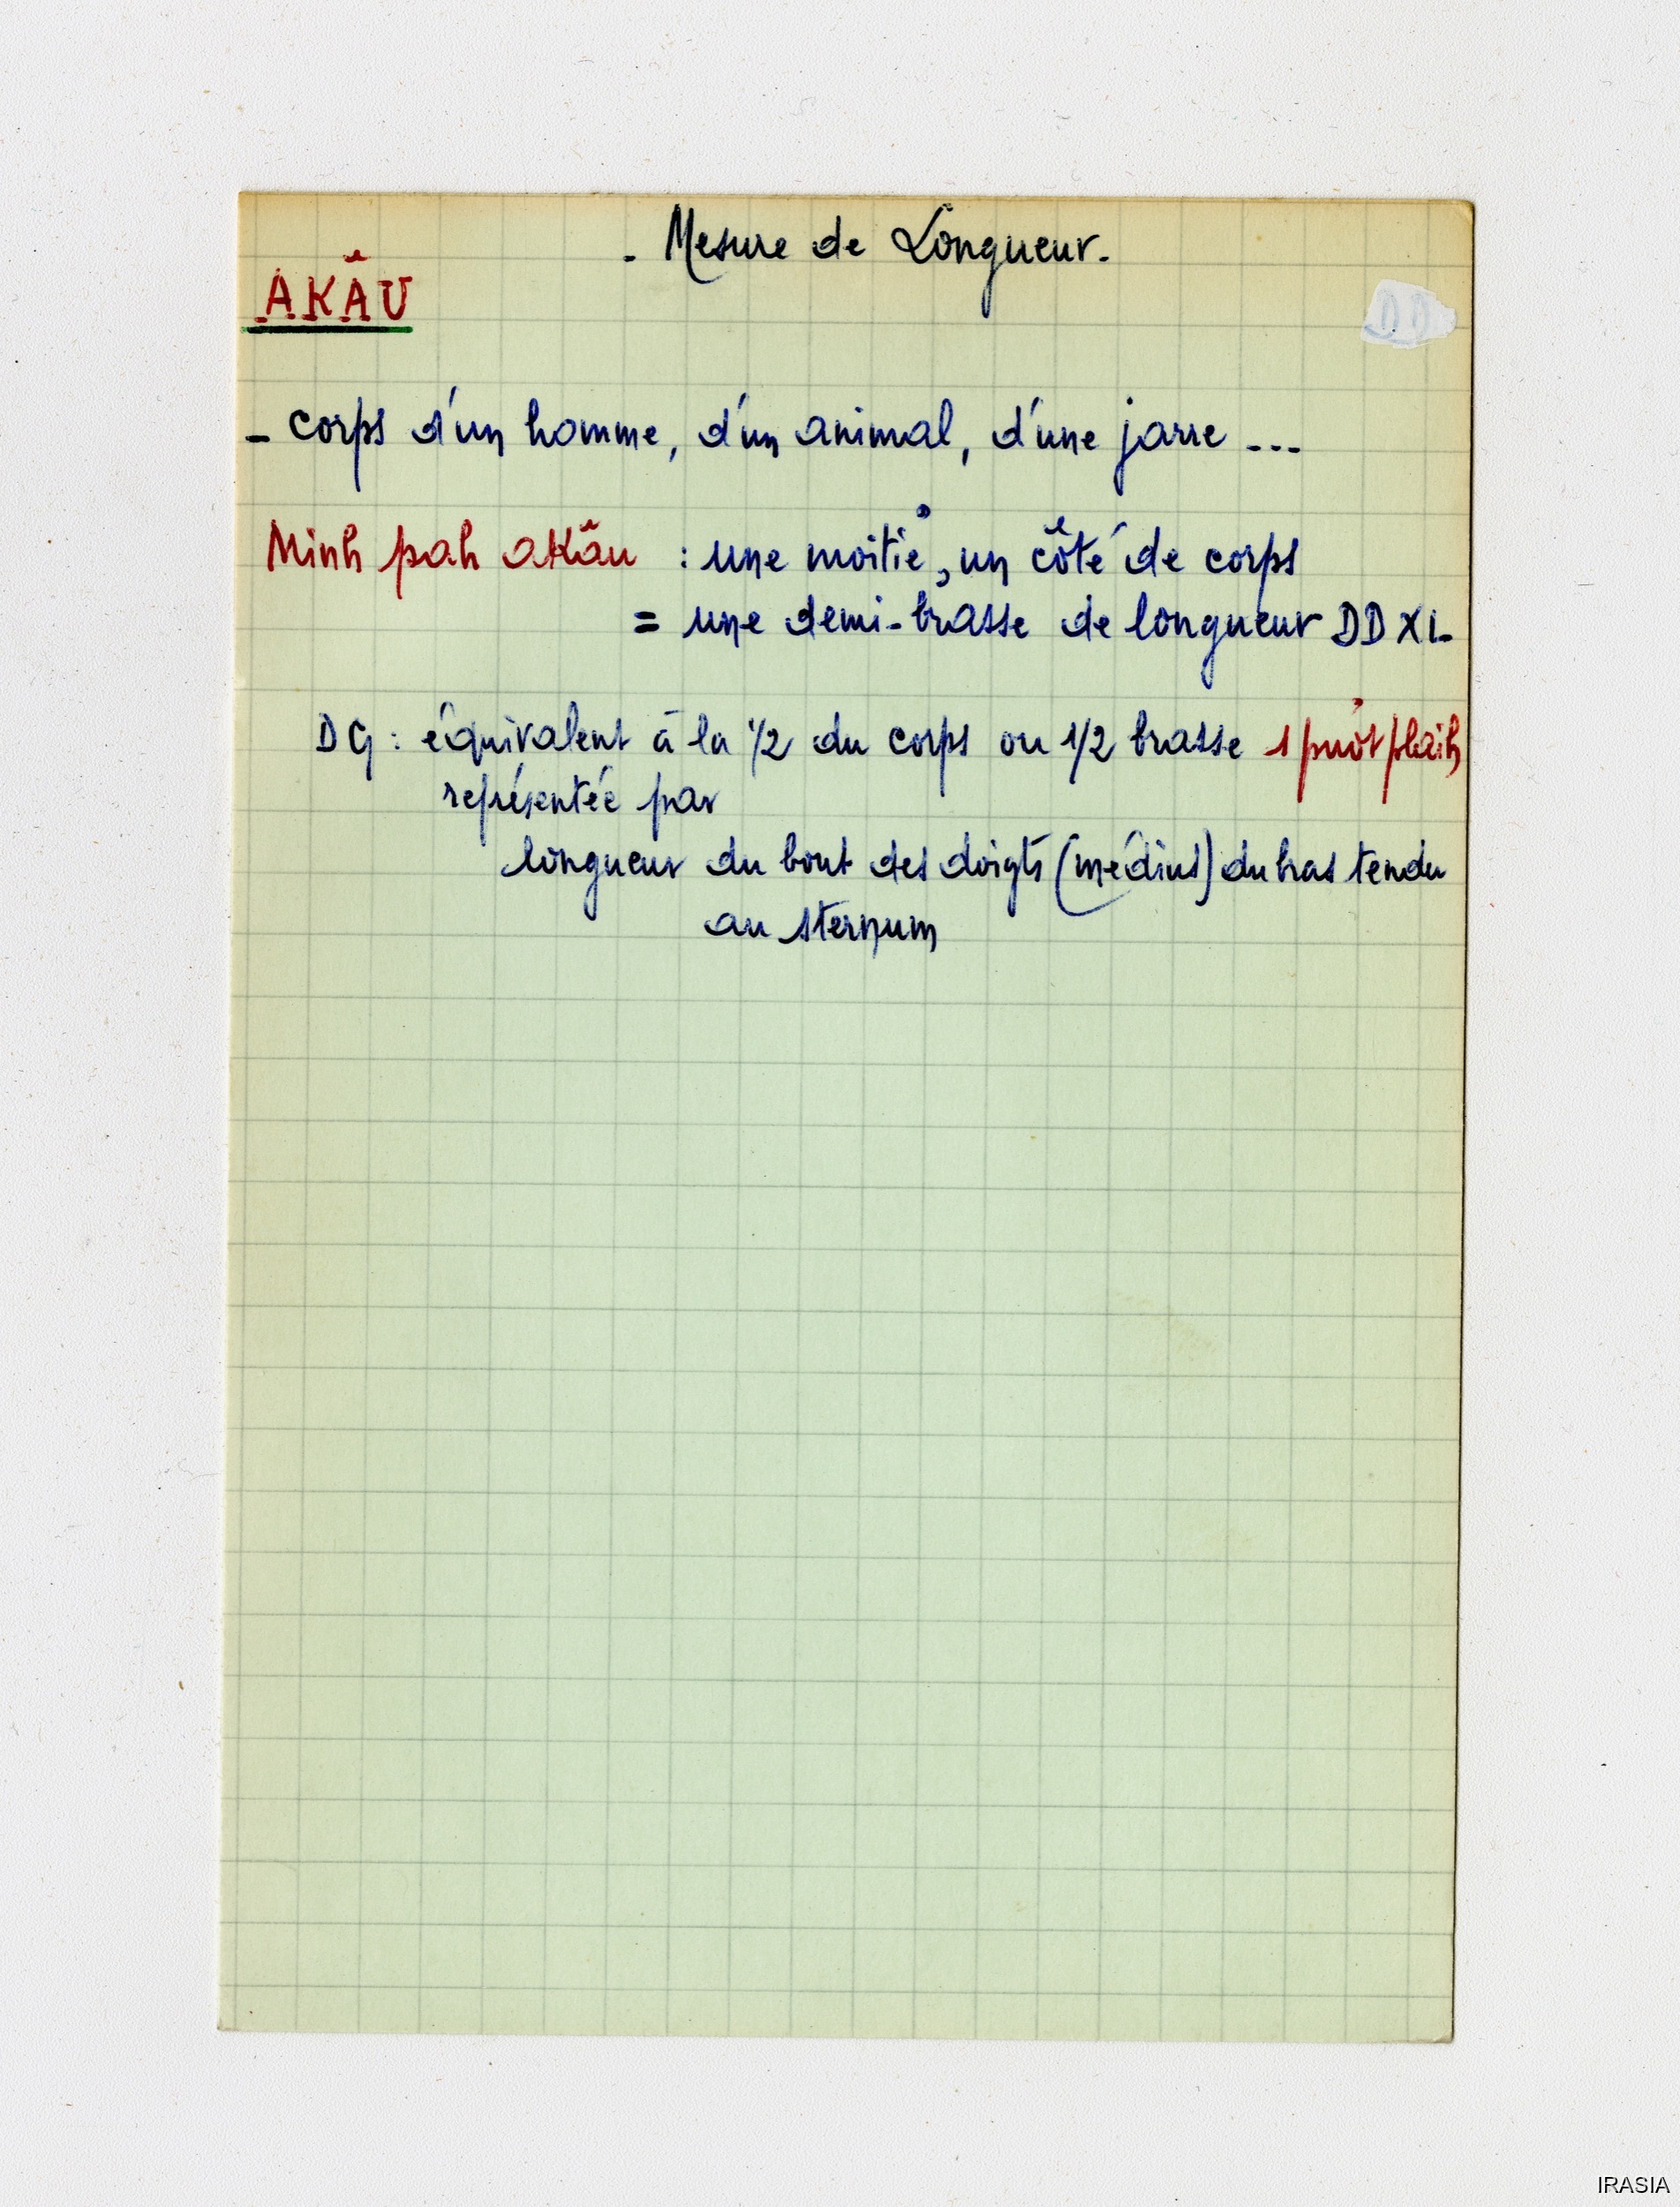 - Mesure de Longueur -
AKÂU
DD
- corps d'un homme, d'un animal, d'une jarre ...
Minh pah akâu : une moitié, un côté de corps
= une demi-brasse de longueur DD XL
DG : équivalent à la 1/2 du corps ou 1/2 brasse 1 puôt plaih
représentée par
longueur du bout des doigts (médius) du bras tendu
au sternum
IRASIA